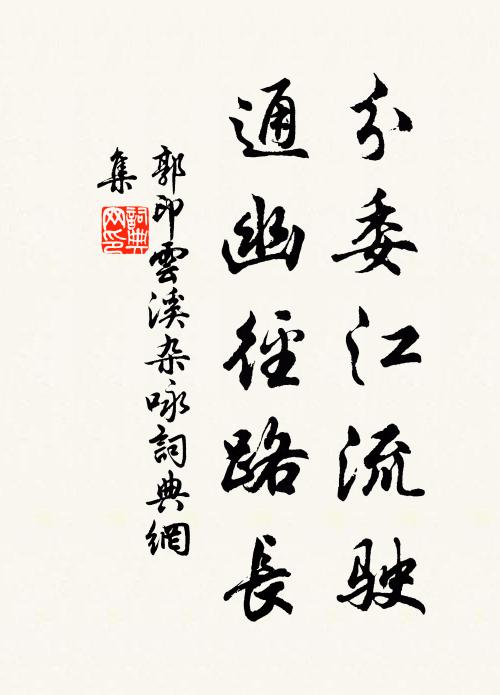 分委江流駛
通幽徑路長
郭印雲溪杂咏詞典網
集
詞典网印